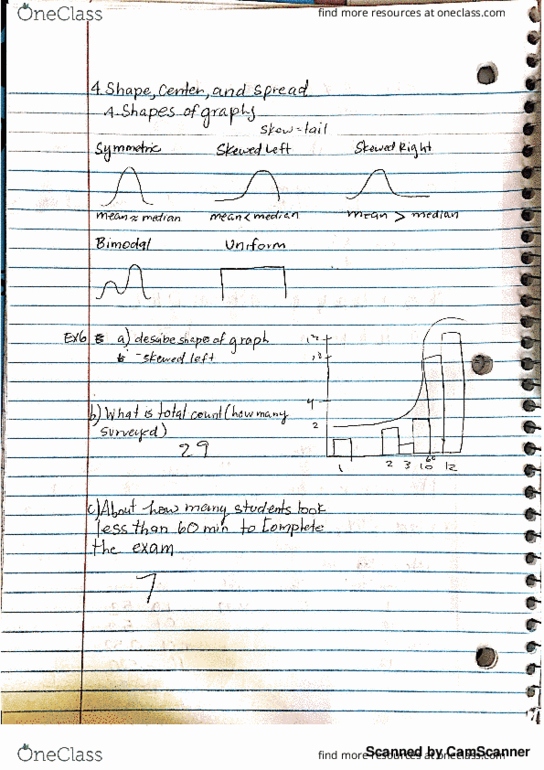 OneClass
find more resources at oneclass.com
4. Shape, Center, and Spread
A. Shapes of graphs
Skew = tail
Symmetric Skewed Left Skewed Right
mean ≈ median mean < median mean > median
Bimodal Uniform
EX6 a) desribe shape of graph
- skewed left
b) What is total count (how many
surveyed)
29
4
2
1 2 3 10 12
60
c) About how many students took
less than 60 min to complete
the exam
7
OneClass
find more resources at oneclass.com
Scanned by CamScanner